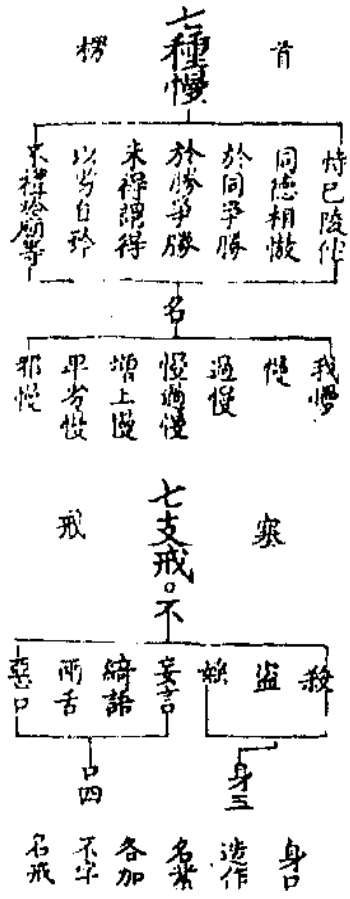 七種慢
首
楞
恃已陵他
同德相慠
於同爭勝
於勝爭勝
未得謂得
以劣自矜
不禮塔廟等
名
我慢
慢
過慢
慢過慢
增上慢
卑劣慢
邪慢
七支戒。不
戒
殺
盜
妄言
綺語
兩舌
惡口
身三
口四
身口
造作
名業
各加
不字
名戒